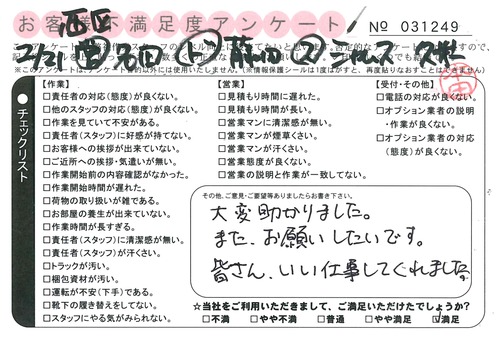 お客様不満足度アンケート
No 031249
西区
※このアンケートは、アンケート目的以外には使用いたしません。(※情報保護シールは1度はがすと、再度貼りなおすことはできません)
チェックリスト
【作業】
□責任者の対応(態度)が良くない。
□他のスタッフの対応(態度)が良くない。
□作業を見ていて不安がある。
□責任者(スタッフ)に好感が持てない。
□お客様への挨拶が出来ていない。
□ご近所への挨拶・気遣いが無い。
□作業開始前の内容確認がなかった。
□作業開始時間が遅れた。
□荷物の取り扱いが雑である。
□お部屋の養生が出来ていない。
□作業時間が長すぎる。
□責任者(スタッフ)に清潔感が無い。
□責任者(スタッフ)が汗くさい。
□トラックが汚い。
□梱包資材が汚い。
□運転が不安(下手)である。
□靴下の履き替えをしてない。
□スタッフにやる気がみられない。
【営業】
□見積もり時間に遅れた。
□見積もり時間が長い。
□営業マンに清潔感が無い。
□営業マンが煙草くさい。
□営業マンが汗くさい。
□営業態度が良くない。
□営業の説明と作業が一致してない。
【受付・その他】
□電話の対応が良くない。
□オプション業者の説明
・作業が良くない。
□オプション業者の対応
(態度)が良くない。
その他、ご意見・ご要望等ありましたらお書き下さい。
大変助かりました。
また、お願いしたいです。
皆さん、いい仕事してくれました。
☆当社をご利用いただきまして、ご満足いただけたでしょうか?
□不満 □やや不満 □普通 □やや満足 ☑満足